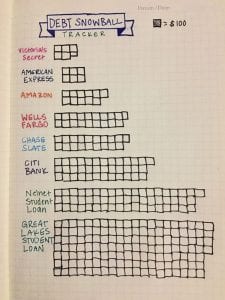 DEBT SNOWBALL
TRACKER
= $100
Victoria's
Secret
AMERICAN
EXPRESS
AMAZON
WELLS
FARGO
CHASE
SLATE
CITI
BANK
Nelnet
Student
Loan
GREAT
LAKES
STUDENT
LOAN